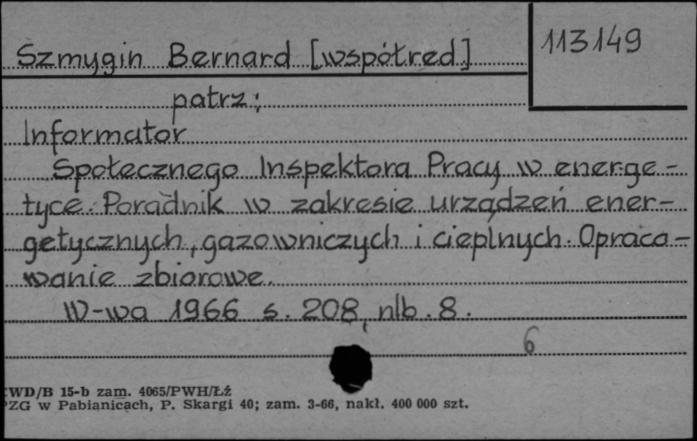 Szmygin Bernard [współred.]
113149
patrz:
Informator
Społecznego Inspektora Pracy w energe-
tyce. Poradnik w zakresie urządzeń ener-
getycznych, gazowniczych i cieplnych. Opraco-
wanie zbiorowe.
W-wa 1966 s. 208, nlb. 8.
6
WD/B 15-b zam. 4065/PWH/Łź
PZG w Pabianicach, P. Skargi 40; zam. 3-66, nakł. 400 000 szt.